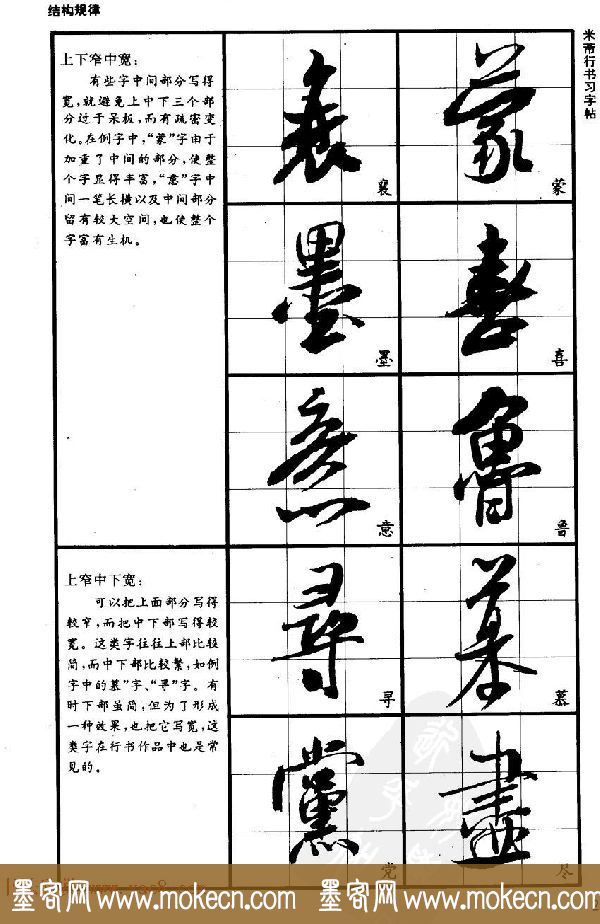 结构规律
米芾行书习字帖
上下窄中宽：
有些字中间部分写得
宽，就避免上中下三个部
分过于呆板，而有疏密变
化。在例字中，“蒙”字由于
加重了中间的部分，使整
个字显得丰富，“意”字中
间一笔长横以及中间部分
留有较大空间，也使整个
字富有生机。
襄
蒙
墨
喜
意
鲁
上窄中下宽：
可以把上面部分写得
较窄，而把中下部写得较
宽。这类字往往上部比较
简，而中下部比较繁，如例
字中的慕”字、“寻”字。有
时下部虽简，但为了形成
一种效果，也把它写宽，这
类字在行书作品中也是常
见的。
寻
慕
党
尽
墨客网 www.mokecn.com 墨客网 www.mokecn.com